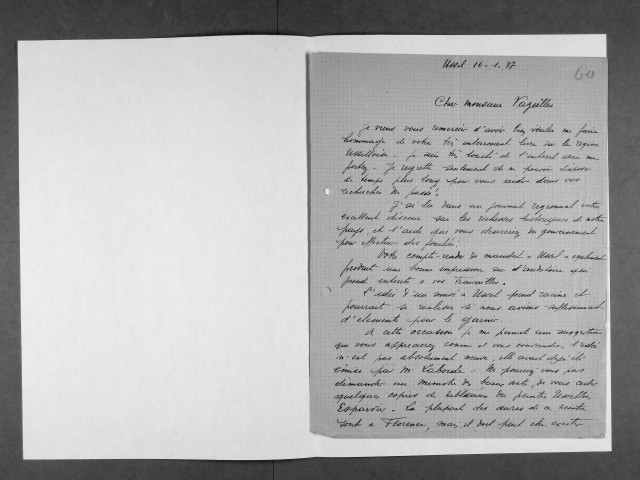 Ussel 16-1.37
60
Cher Monsieur Vazeilles
Je viens vous remercier d'avoir bien voulu me faire
hommage de votre très intéressant livre sur la région
Usselloise. Je suis très touché de l'intérêt que me
portez. Je regrette seulement de ne pouvoir disposer
de temps plus long pour vous aider dans vos
recherches du passé.
J'ai lu dans un journal régional votre
excellent discours sur les richesses historiques de notre
pays, et l'aide que vous désirerez du gouvernement
pour effectuer des fouilles.
Votre compte-rendu de mandat a Ussel a également
produit une bonne impression sur l'auditoire qui
prend intérêt a vos travailles.
L'idée d'un musé a Ussel prend racine et
pourrait se realiser si nous avions suffisamment
d'elements pour le garnir.
A cette occasion je me permet une suggestion
que vous apprecierez comme il vous conviendra, l'idée
n'est pas absolument neuve, elle avait déjà été
émise par Mr Laborde - Ne pourriez vous pas
demander au ministre des beaux arts, de vous céder
quelques copies de tableaux du peintre Ussellois
Esparvier. La plupart des œuvres de ce peintre
sont a Florence, mais il doit peut etre exister